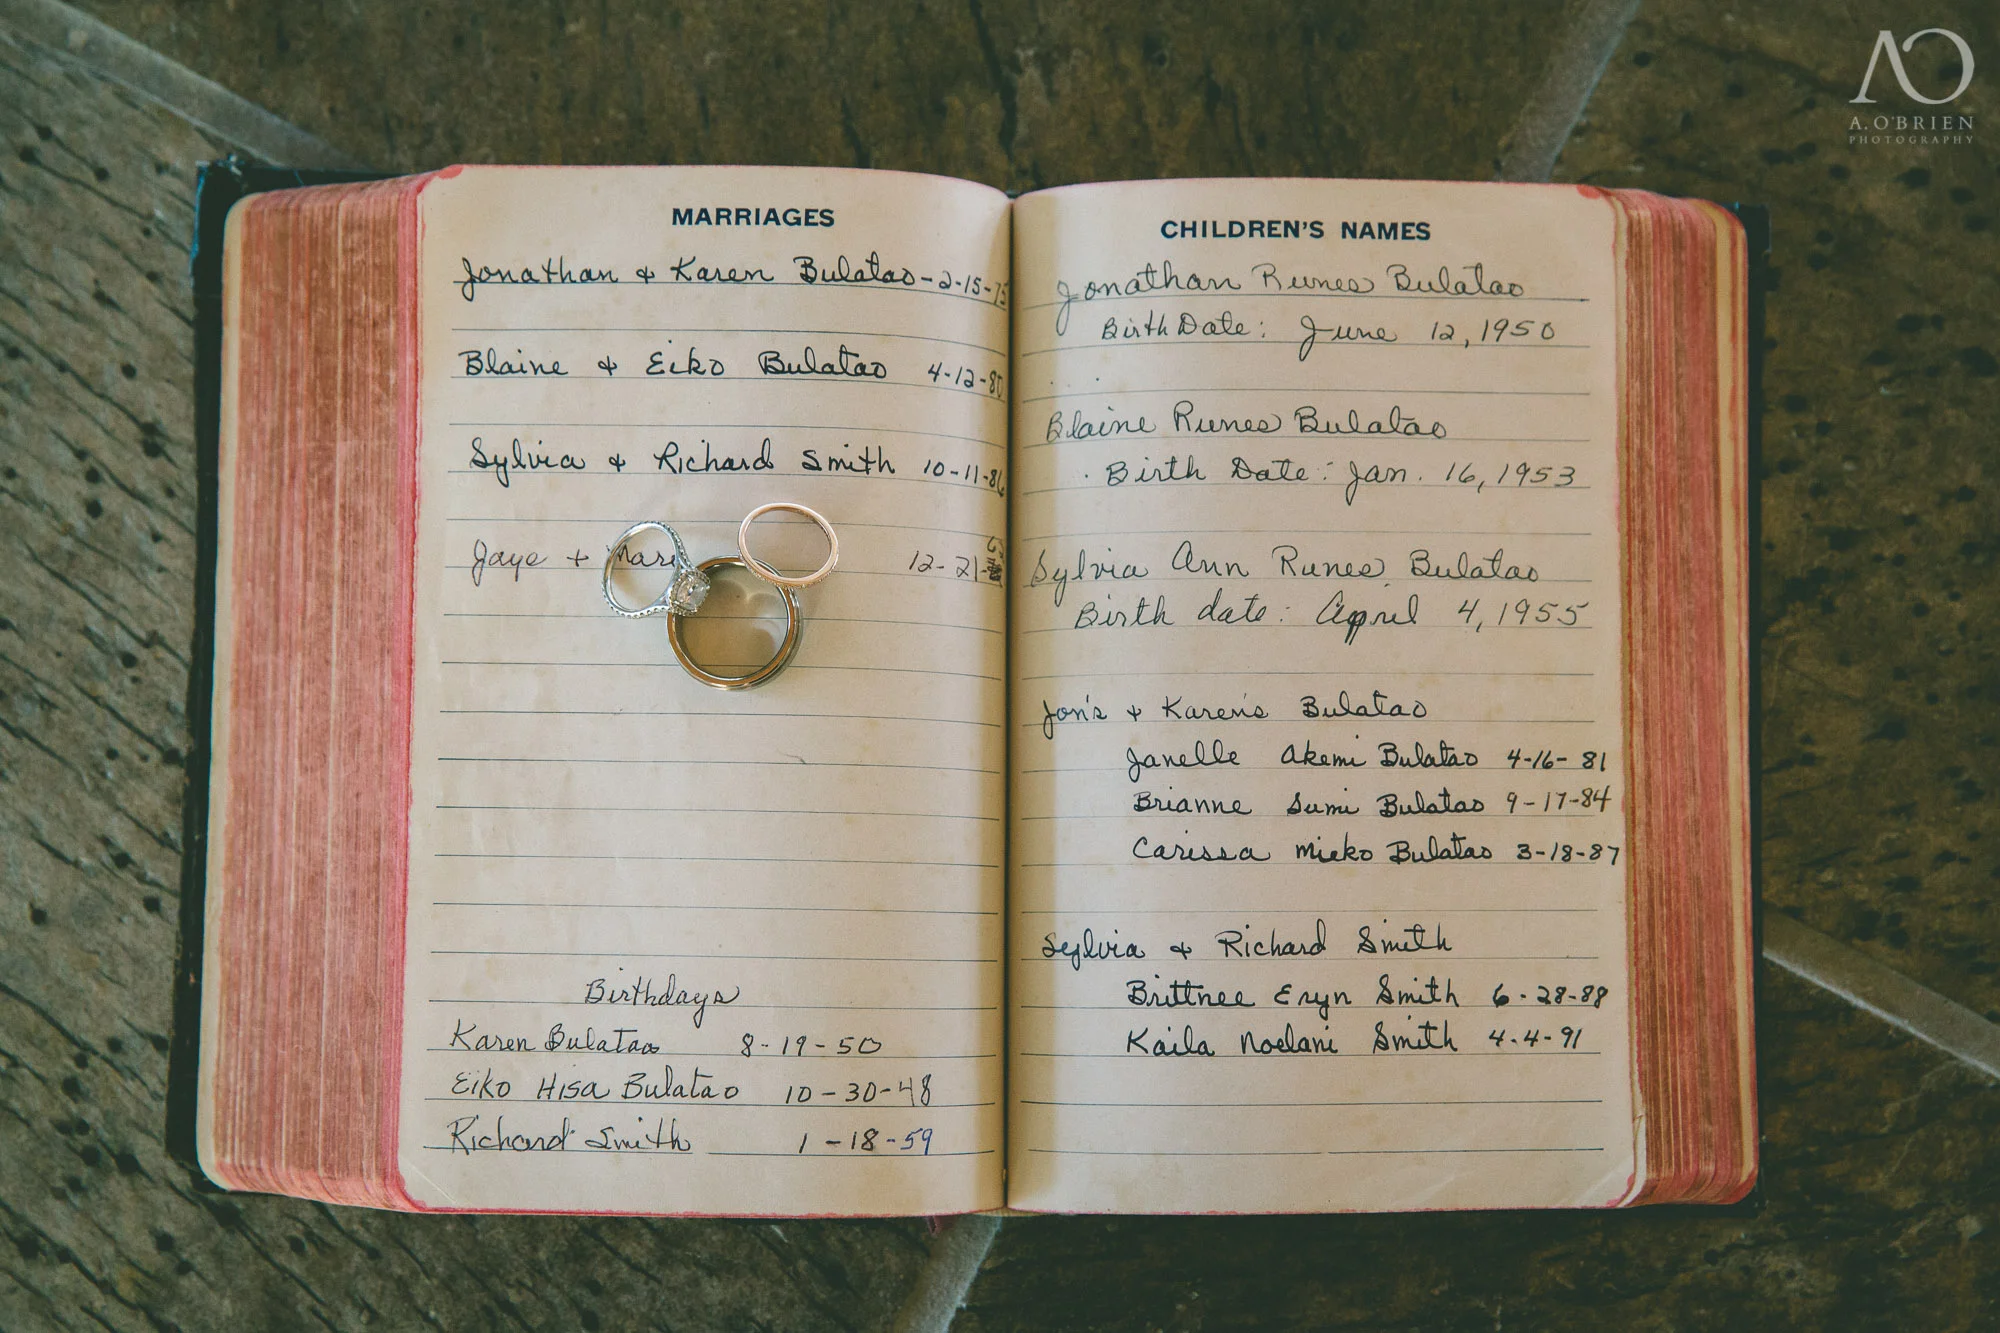 AO
A. O'BRIEN
PHOTOGRAPHY
MARRIAGES
Jonathan & Karen Bulatao - 2-15-75
Blaine & Eiko Bulatao 4-12-80
Sylvia & Richard Smith 10-11-86
Jaye + 12-21-
Birthdays
Karen Bulatao 8-19-50
Eiko Hisa Bulatao 10-30-48
Richard Smith 1-18-59
CHILDREN'S NAMES
Jonathan Runes Bulatao
Birth Date: June 12, 1950
Blaine Runes Bulatao
Birth Date: Jan. 16, 1953
Sylvia Ann Runes Bulatao
Birth date: April 4, 1955
Jon's & Karen's Bulatao
Janelle Akemi Bulatao 4-16-81
Brianne Sumi Bulatao 9-17-84
Carissa Mieko Bulatao 3-18-87
Sylvia & Richard Smith
Brittnee Eryn Smith 6-28-88
Kaila Noelani Smith 4-4-91